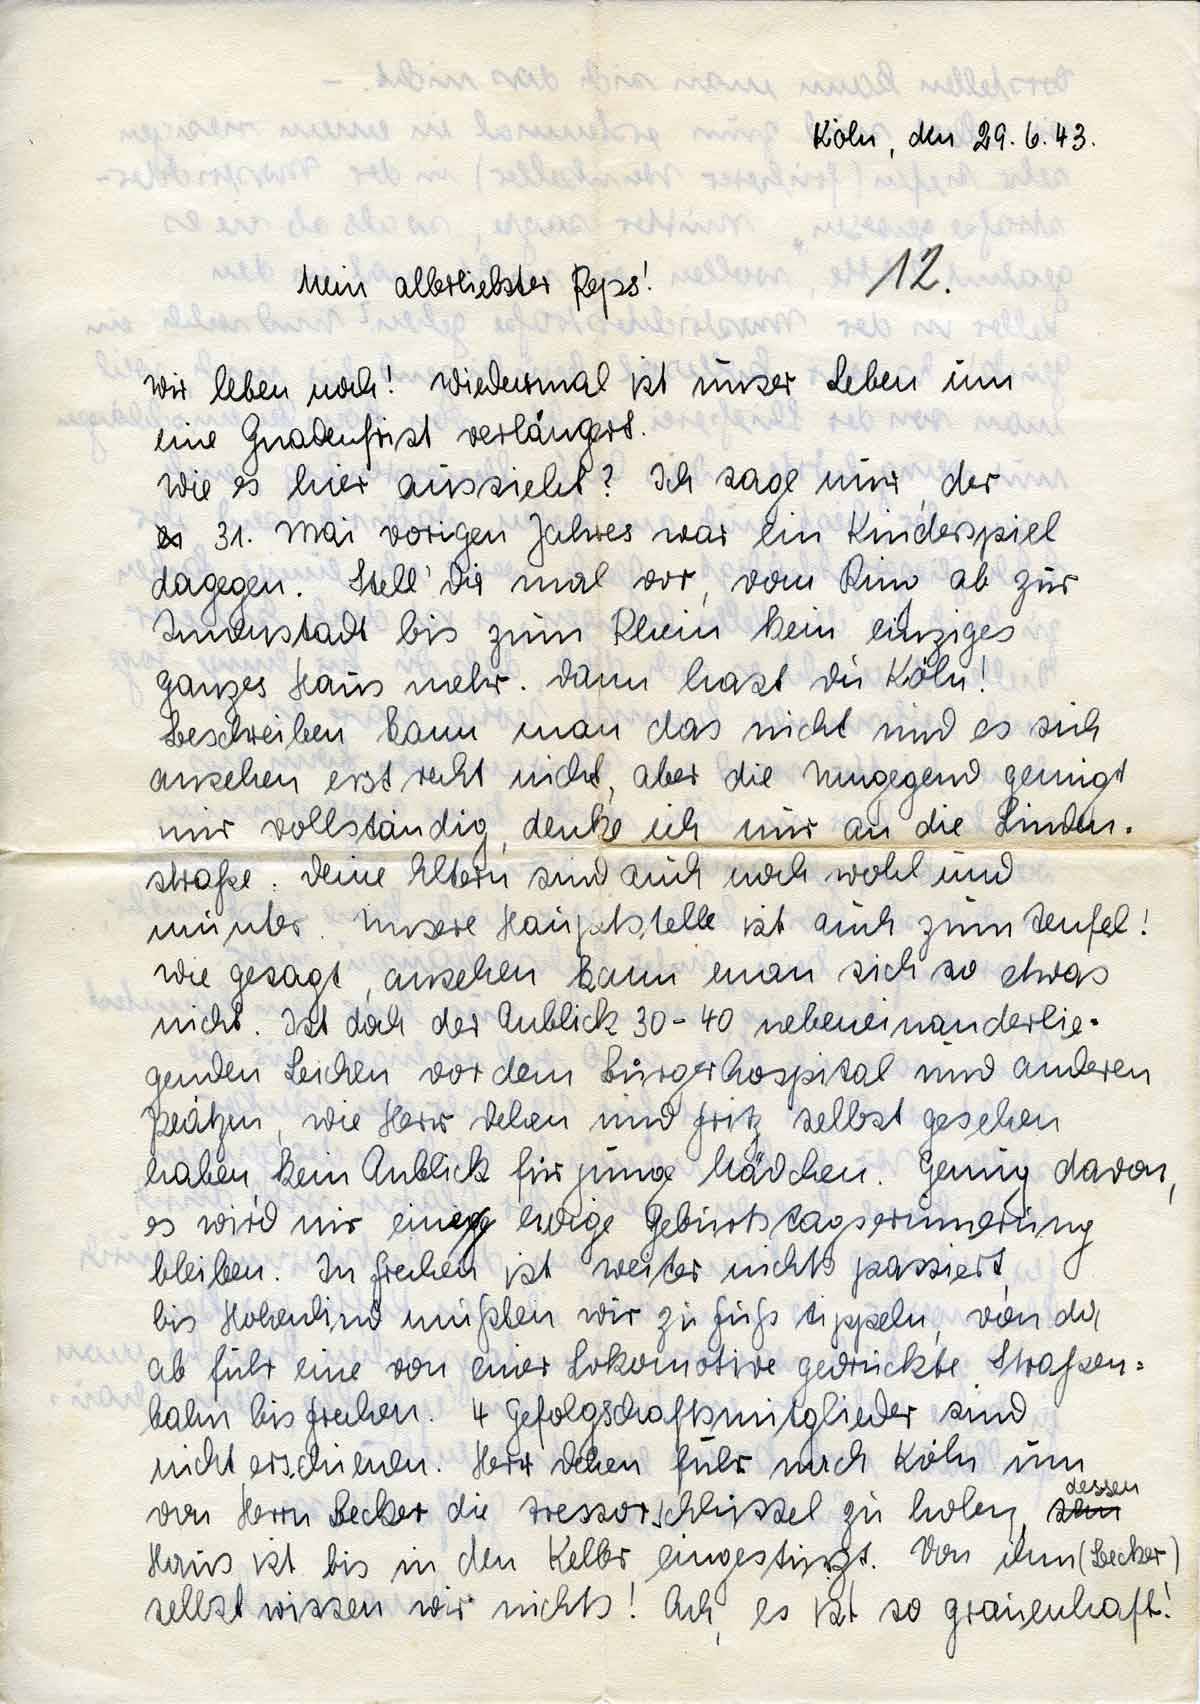 Köln, den 29.6.43.
12.
Mein allerliebster Peps!
Wir leben noch! Wiedermal ist unser Leben um
eine Gnadenfrist verlängert.
Wie es hier aussieht? Ich sage nur, der
31. Mai vorigen Jahres war ein Kinderspiel
dagegen. Stell' Dir mal vor, vom Ring ab zur
Innenstadt bis zum Rhein kein einziges
ganzes Haus mehr. Dann hast Du Köln!
Beschreiben kann man das nicht und es sich
ansehen erst recht nicht, aber die Umgegend genügt
mir vollständig, denke ich nur an die Linden-
straße. Deine Eltern sind auch noch wohl und
munter. Unsere Hauptstelle ist auch zum Teufel!
Wie gesagt, ansehen kann man sich so etwas
nicht. Ist doch der Anblick 30-40 nebeneinanderlie-
genden Leichen vor dem Bürgerhospital und anderen
Plätzen, wie Herr Dehen und Fritz selbst gesehen
haben, kein Anblick für junge Mädchen. Genug davon,
es wird mir eine ewige Geburtstagserinnerung
bleiben. In Frechen ist weiter nichts passiert,
bis Hohenlind mußten wir zu Fuß tippeln, von da
ab fuhr eine von einer Lokomotive gedrückte Straßen-
bahn bis Frechen. 4 Gefolgschaftsmitglieder sind
nicht erschienen. Herr Dehen fuhr nach Köln um
von Herrn Becker die Tressorschlüssel zu holen, dessen
Haus ist bis in den Keller eingestürzt. Von ihm (Becker)
selbst wissen wir nichts! Ach, es ist so grauenhaft!